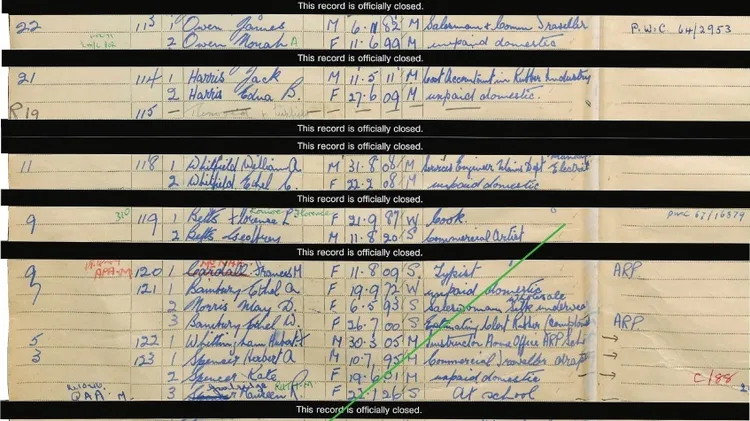 This record is officially closed.
22 113 1 Owen James M 6.11.82 M Salesman & Comm Traveller P.W.C. 64/2953
2 Owen Norah A F 11.6.99 M unpaid domestic
This record is officially closed.
21 114 1 Harris Jack M 11.5.11 M Cost Accountant in Rubber Industry
2 Harris Edna B. F 27.6.09 M unpaid domestic.
R19 115
This record is officially closed.
This record is officially closed.
11 118 1 Whitfield William A M 31.8.08 M Services Engineer Dept Electric
2 Whitfield Ethel C. F 22.2.08 M unpaid domestic
This record is officially closed.
9 310 119 1 Betts Florence L F 21.9.87 W Cook
2 Betts Geoffrey M 11.8.20 S Commercial Artist
This record is officially closed.
9 120 1 Frances M F 11.8.09 S Typist ARP
7 121 1 Bambury Ethel A F 19.9.72 W unpaid domestic
2 Morris May D. F 6.5.93 S Saleswoman Wholesale Silk underwear
3 Bambury Ethel W F 26.7.00 S Estimating Rubber ARP
5 122 1 Whittingham M 30.3.05 M Instructor Home Office ARP
3 123 1 Spencer Herbert A M 10.7.95 M Commercial Traveller
2 Spencer Kate F 19.6.01 M unpaid domestic C/88
3 Maureen K. F 22.1.26 S At school
This record is officially closed.